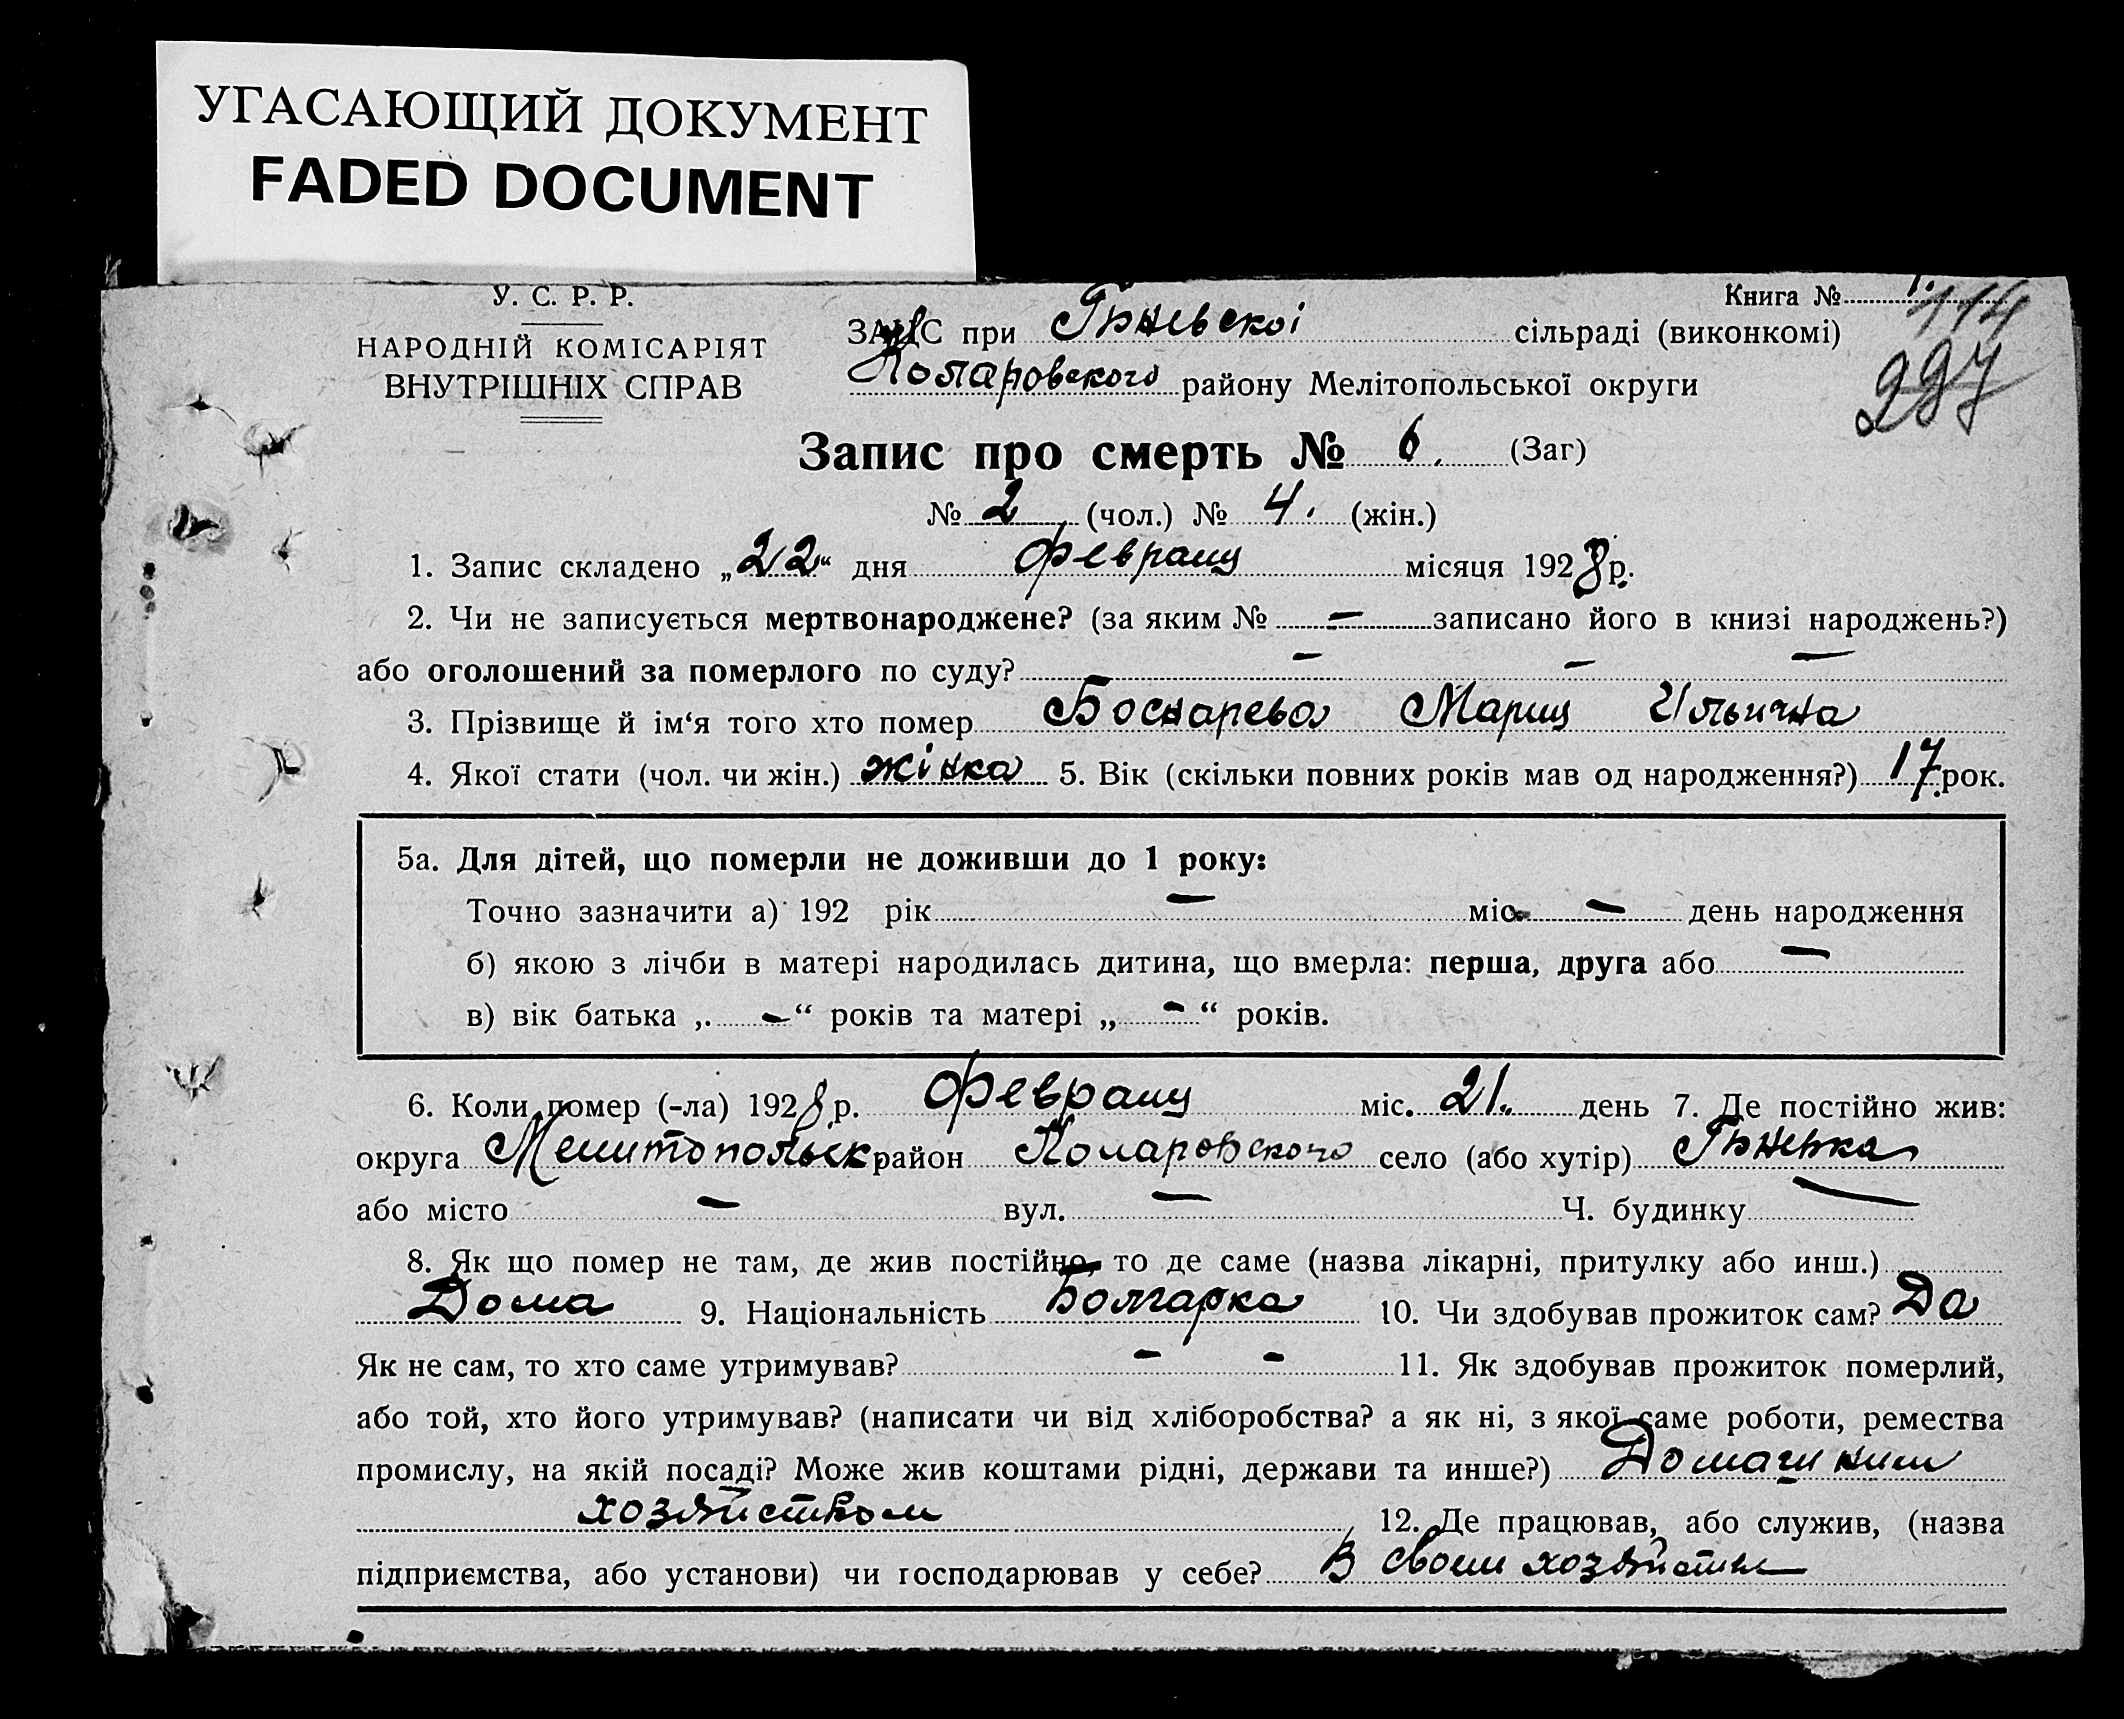 УГАСАЮЩИЙ ДОКУМЕНТ
FADED DOCUMENT
У. С. Р. Р.
НАРОДНІЙ КОМІСАРІЯТ
ВНУТРІШНІХ СПРАВ
Книга № 1.
114
297
ЗАГС при сільраді (виконкомі)
району Мелітопольської округи
Запис про смерть № 6. (Заг)
№ 2 (чол.) № 4. (жін.)
1. Запис складено „22“ дня Февраля місяця 1928 р.
2. Чи не записується мертвонароджене? (за яким № — записано його в книзі народжень?)
або оголошений за померлого по суду? — — —
3. Прізвище й ім‘я того хто помер Мария Ильична
4. Якої стати (чол. чи жін.) жінка 5. Вік (скільки повних років мав од народження?) 17 рок.
5а. Для дітей, що померли не доживши до 1 року:
Точно зазначити а) 192 рік — міс. — день народження
б) якою з лічби в матері народилась дитина, що вмерла: перша, друга або —
в) вік батька „ — “ років та матері „ — “ років.
6. Коли помер (-ла) 1928 р. Февраля міс. 21. день 7. Де постійно жив:
округа Мелитопольск район село (або хутір)
або місто — вул. — Ч. будинку —
8. Як що помер не там, де жив постійно, то де саме (назва лікарні, притулку або инш.)
Дома 9. Національність Болгарка 10. Чи здобував прожиток сам? Да
Як не сам, то хто саме утримував? — — 11. Як здобував прожиток померлий,
або той, хто його утримував? (написати чи від хліборобства? а як ні, з якої саме роботи, ремества
промислу, на якій посаді? Може жив коштами рідні, держави та инше?) Домашним
хозяйством 12. Де працював, або служив, (назва
підприємства, або установи) чи господарював у себе? В своем хозяйстве